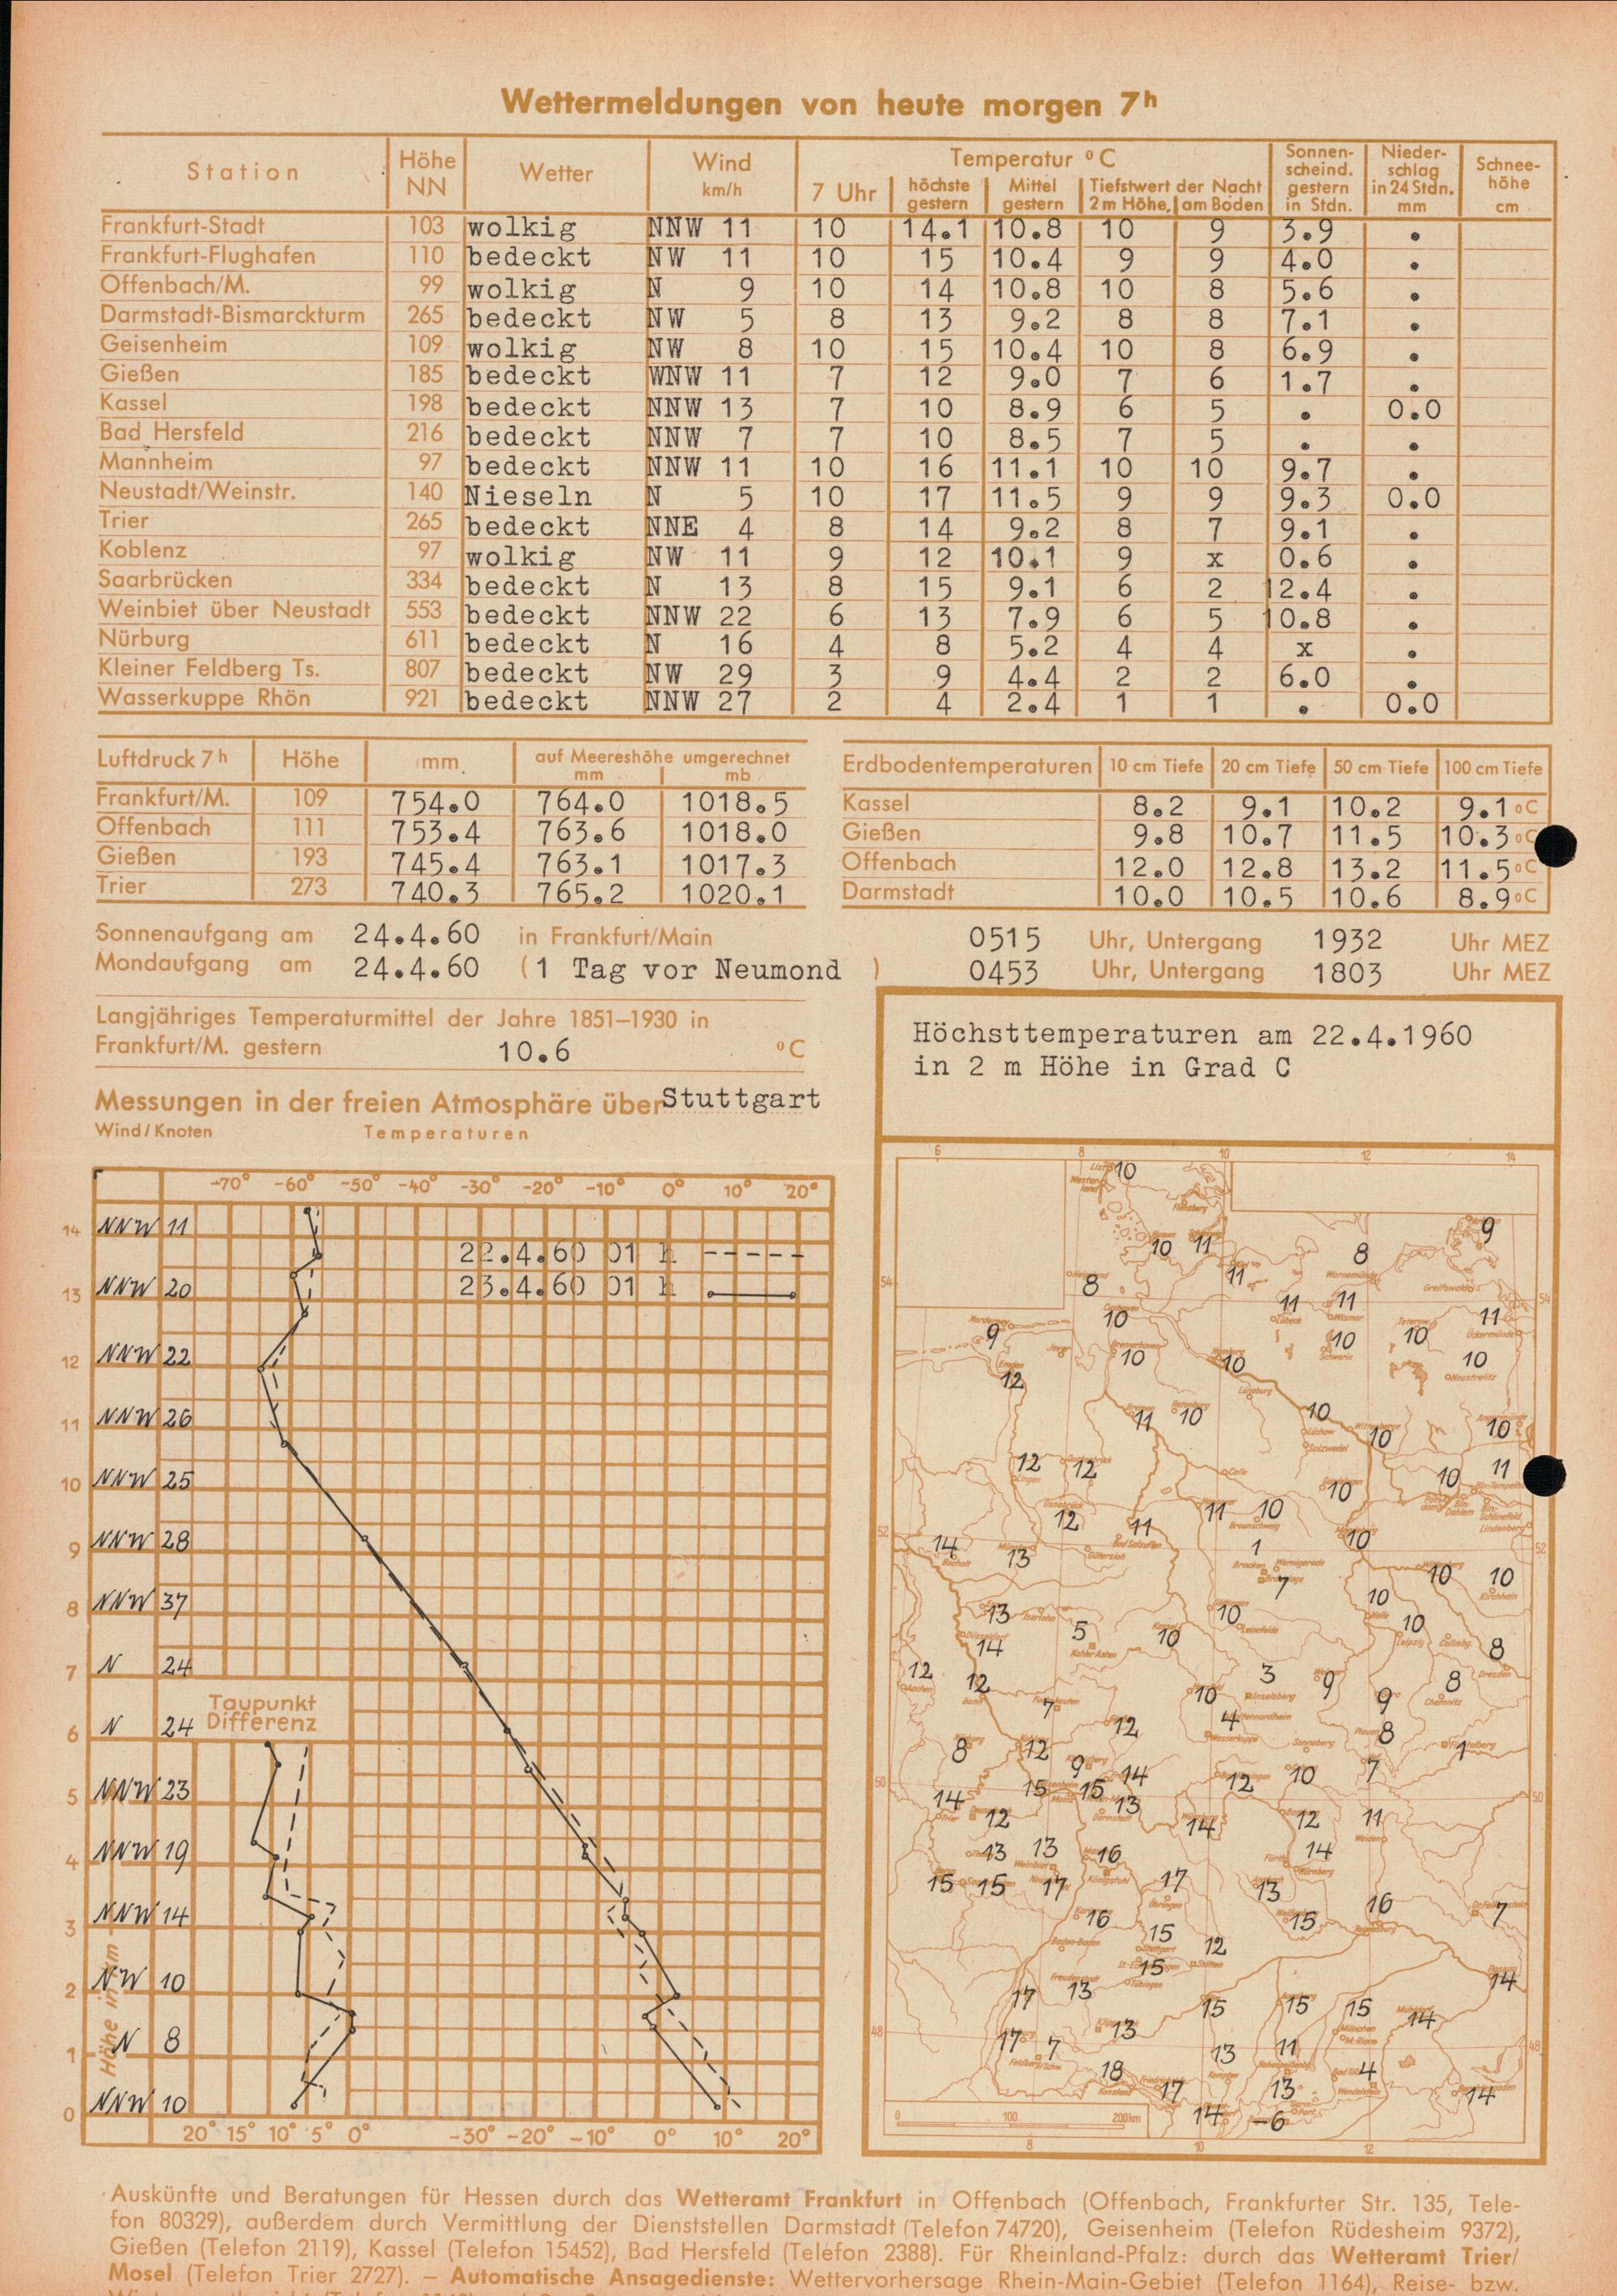 Wettermeldungen von heute morgen 7h
Station Höhe NN Wetter Wind km/h Temperatur °C Sonnenscheind. gestern in Stdn. Niederschlag in 24 Stdn. mm Schneehöhe cm
7 Uhr höchste gestern Mittel gestern Tiefstwert der Nacht 2 m Höhe, am Boden
Frankfurt-Stadt 103 wolkig NNW 11 10 14.1 10.8 10 9 3.9 .
Frankfurt-Flughafen 110 bedeckt NW 11 10 15 10.4 9 9 4.0 .
Offenbach/M. 99 wolkig N 9 10 14 10.8 10 8 5.6 .
Darmstadt-Bismarckturm 265 bedeckt NW 5 8 13 9.2 8 8 7.1 .
Geisenheim 109 wolkig NW 8 10 15 10.4 10 8 6.9 .
Gießen 185 bedeckt WNW 11 7 12 9.0 7 6 1.7 .
Kassel 198 bedeckt NNW 13 7 10 8.9 6 5 . 0.0
Bad Hersfeld 216 bedeckt NNW 7 7 10 8.5 7 5 . .
Mannheim 97 bedeckt NNW 11 10 16 11.1 10 10 9.7 .
Neustadt/Weinstr. 140 Nieseln N 5 10 17 11.5 9 9 9.3 0.0
Trier 265 bedeckt NNE 4 8 14 9.2 8 7 9.1 .
Koblenz 97 wolkig NW 11 9 12 10.1 9 x 0.6 .
Saarbrücken 334 bedeckt N 13 8 15 9.1 6 2 12.4 .
Weinbiet über Neustadt 553 bedeckt NNW 22 6 13 7.9 6 5 10.8 .
Nürburg 611 bedeckt N 16 4 8 5.2 4 4 x .
Kleiner Feldberg Ts. 807 bedeckt NW 29 3 9 4.4 2 2 6.0 .
Wasserkuppe Rhön 921 bedeckt NNW 27 2 4 2.4 1 1 . 0.0
Luftdruck 7h Höhe mm auf Meereshöhe umgerechnet mm mb
Frankfurt/M. 109 754.0 764.0 1018.5
Offenbach 111 753.4 763.6 1018.0
Gießen 193 745.4 763.1 1017.3
Trier 273 740.3 765.2 1020.1
Erdbodentemperaturen 10 cm Tiefe 20 cm Tiefe 50 cm Tiefe 100 cm Tiefe
Kassel 8.2 9.1 10.2 9.1 °C
Gießen 9.8 10.7 11.5 10.3 °C
Offenbach 12.0 12.8 13.2 11.5 °C
Darmstadt 10.0 10.5 10.6 8.9 °C
Sonnenaufgang am 24.4.60 in Frankfurt/Main 0515 Uhr, Untergang 1932 Uhr MEZ
Mondaufgang am 24.4.60 (1 Tag vor Neumond ) 0453 Uhr, Untergang 1803 Uhr MEZ
Langjähriges Temperaturmittel der Jahre 1851–1930 in
Frankfurt/M. gestern 10.6 °C
Messungen in der freien Atmosphäre über Stuttgart
Wind/Knoten Temperaturen
-70° -60° -50° -40° -30° -20° -10° 0° 10° 20°
14 NNW 11
22.4.60 01 h
23.4.60 01 h
13 NNW 20
12 NNW 22
11 NNW 26
10 NNW 25
9 NNW 28
8 NNW 37
7 N 24
Taupunkt
6 N 24 Differenz
5 NNW 23
4 NNW 19
3 NNW 14
2 NW 10
1 N 8
0 NNW 10
Höhe in km
20° 15° 10° 5° 0° -30° -20° -10° 0° 10° 20°
Höchsttemperaturen am 22.4.1960
in 2 m Höhe in Grad C
6 8 10 12 14
10
9
10 11 8
8 11
54 54
10 11 11 11
9 10 10
10 10 10
12
11 10 10 10 10
12 12 10 11
12 11 11 10 10
52 52
14 13 1 10
7 10 10
13 10 10
14 5 10 10 8
12 12 3 9 8
7 10 9
12 4 8
8 12 1
9 14 10 7
50 15 15 12 50
14 12 13 14 12 11
13 13 16 14
15 15 17 17 13
16 15 16 7
15 12
15 14
17 13 15 15 15 14
48 48
17 7 13 13 11
18 17 13 4 14
14 -6
0 100 200 km
8 10 12
Auskünfte und Beratungen für Hessen durch das Wetteramt Frankfurt in Offenbach (Offenbach, Frankfurter Str. 135, Tele-
fon 80329), außerdem durch Vermittlung der Dienststellen Darmstadt (Telefon 74720), Geisenheim (Telefon Rüdesheim 9372),
Gießen (Telefon 2119), Kassel (Telefon 15452), Bad Hersfeld (Telefon 2388). Für Rheinland-Pfalz: durch das Wetteramt Trier/
Mosel (Telefon Trier 2727). — Automatische Ansagedienste: Wettervorhersage Rhein-Main-Gebiet (Telefon 1164), Reise- bzw.